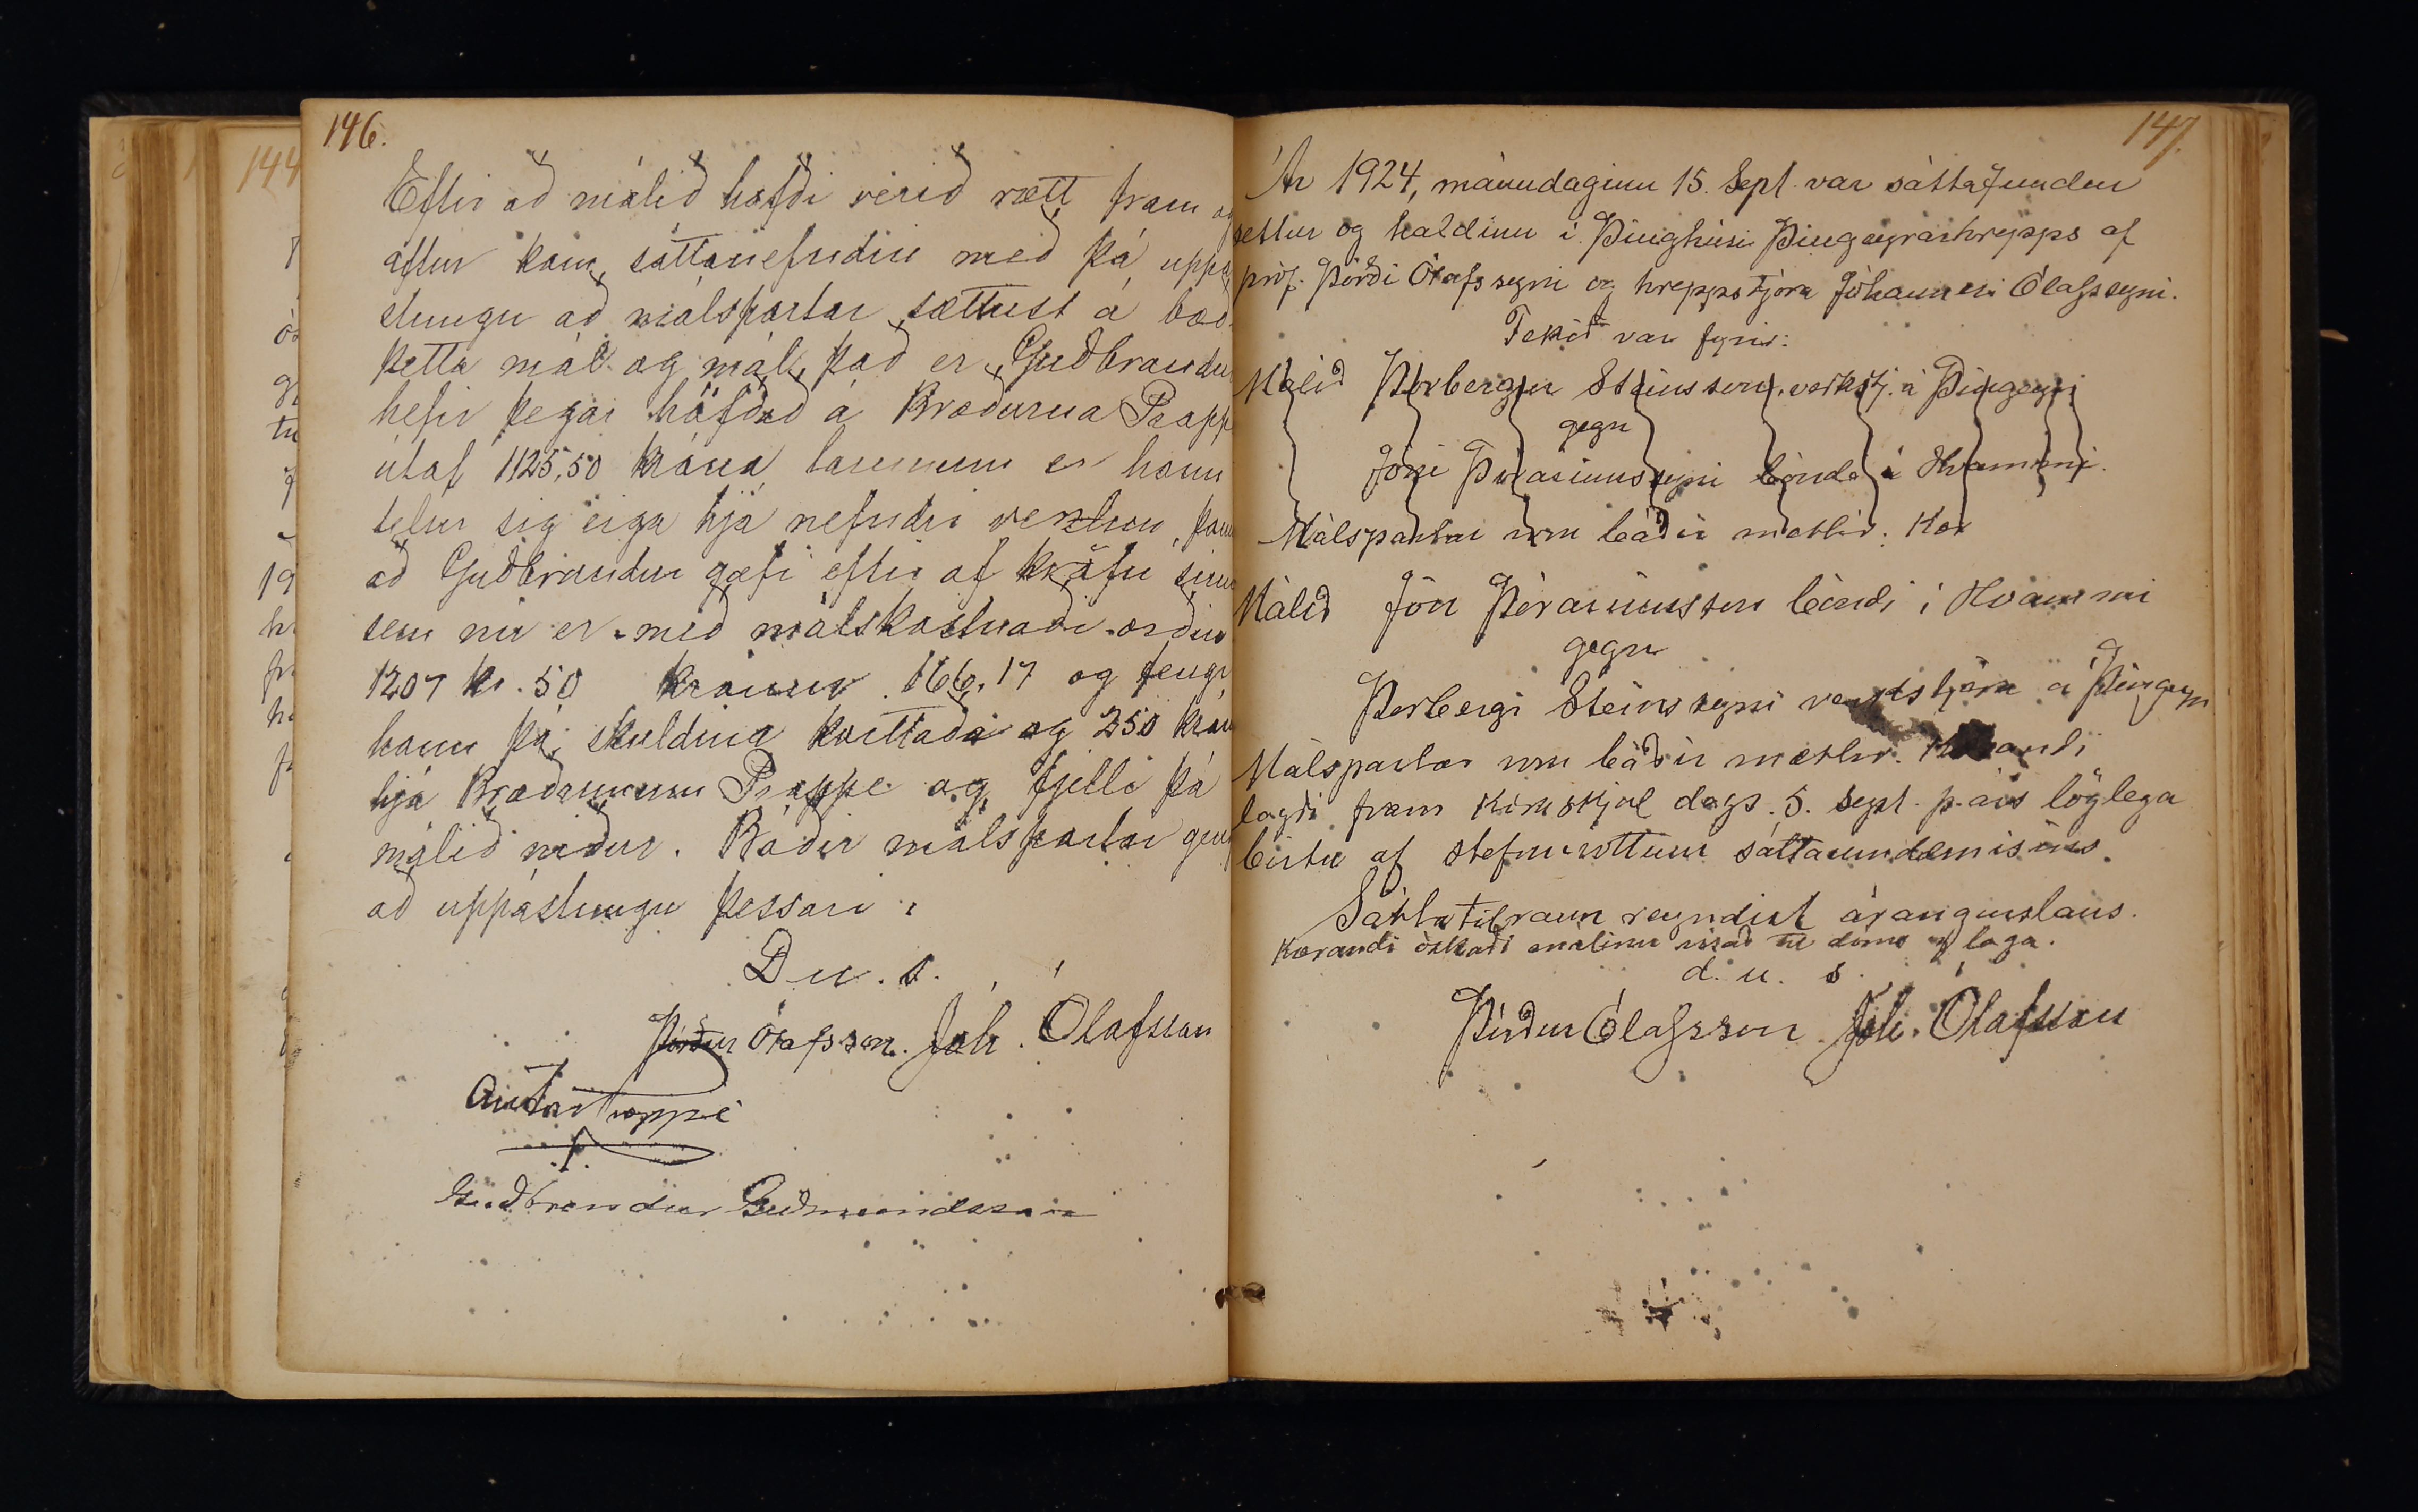 146.
Eftir að málið hafði verið rætt fram og
aftur kom sáttanefndin með þá uppá
stungu að málspartar sættust á bæði
þetta mál og mál, það er Guðbrandur
hefir þegar höfðað á Bræðurna Proppé
útaf 1125,50 króna launum er hann
telur sig eiga hjá nefndri verslun, þann
að Guðbrandur gæfi eftir af kröfu sinni
sem nú er með málskostnaði orðin
1207 kr. 50 krónur 166,17 og fengi
hann þá skuldina kvittaða og 250 krón
hjá Bræðrunum Proppé og fjelli þá
málið niður. Báðir málspartar gen
að uppástungu þessari.
D. u. s.
Þórður Ólafsson. Jóh. Ólafsson
Anton Proppé
Guðbrandur Guðmundsson
147.
Ár 1924, mánudaginn 15. Sept. var sáttafundur
settur og haldinn í Þinghúsi Þingeyrarhrepps af
próf. Þórði Ólafssyni og hreppstjóra Jóhannesi Ólafssyni.
Tekið var fyrir:
Málið Þorbergur Steinsson, verkstj. á Þingeyri
gegn
Jóni Þórarinssyni bónda í Hvammi.
Málspartar voru báðir mættir. Kær
Málið Jón Þórarinsson bóndi í Hvammi
gegn
Þorbergi Steinssyni verkstjóra á Þingeyri
Málspartar voru báðir mættir. Kærandi
lagði fram kæruskjal dags. 5. sept. þ. árs löglega
birtu af stefnuvottum sáttaumdæmisins.
Sáttatilraun reyndist árangurslaus.
Kærandi óskaði málinu vísað til dóms og laga.
d. u. s.
Þórður Ólafsson Jóh. Ólafsson